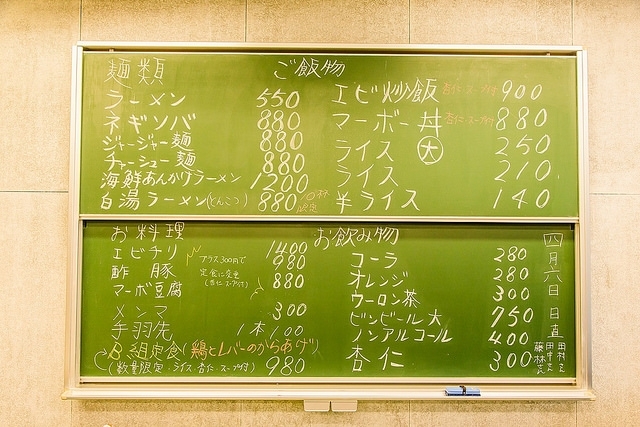 麺類
ラーメン 550
ネギソバ 880
ジャージャー麺 880
チャーシュー麺 880
海鮮あんかけラーメン 1200
白湯ラーメン(とんこつ) 880 10杯限定
ご飯物
エビ炒飯 杏仁・スープ付 900
マーボー丼 杏仁・スープ付 880
ライス 大 250
ライス 210
半ライス 140
お料理
エビチリ 1400
酢豚 980
マーボ豆腐 880
プラス300円で
定食に変更
(杏仁・スープ付)
メンマ 300
手羽先 1本100
B組定食(鶏とレバーのからあげ)
(数量限定・ライス・杏仁・スープ付) 980
お飲み物
コーラ 280
オレンジ 280
ウーロン茶 300
ビンビール大 750
ノンアルコール 400
杏仁 300
四月六日
日直